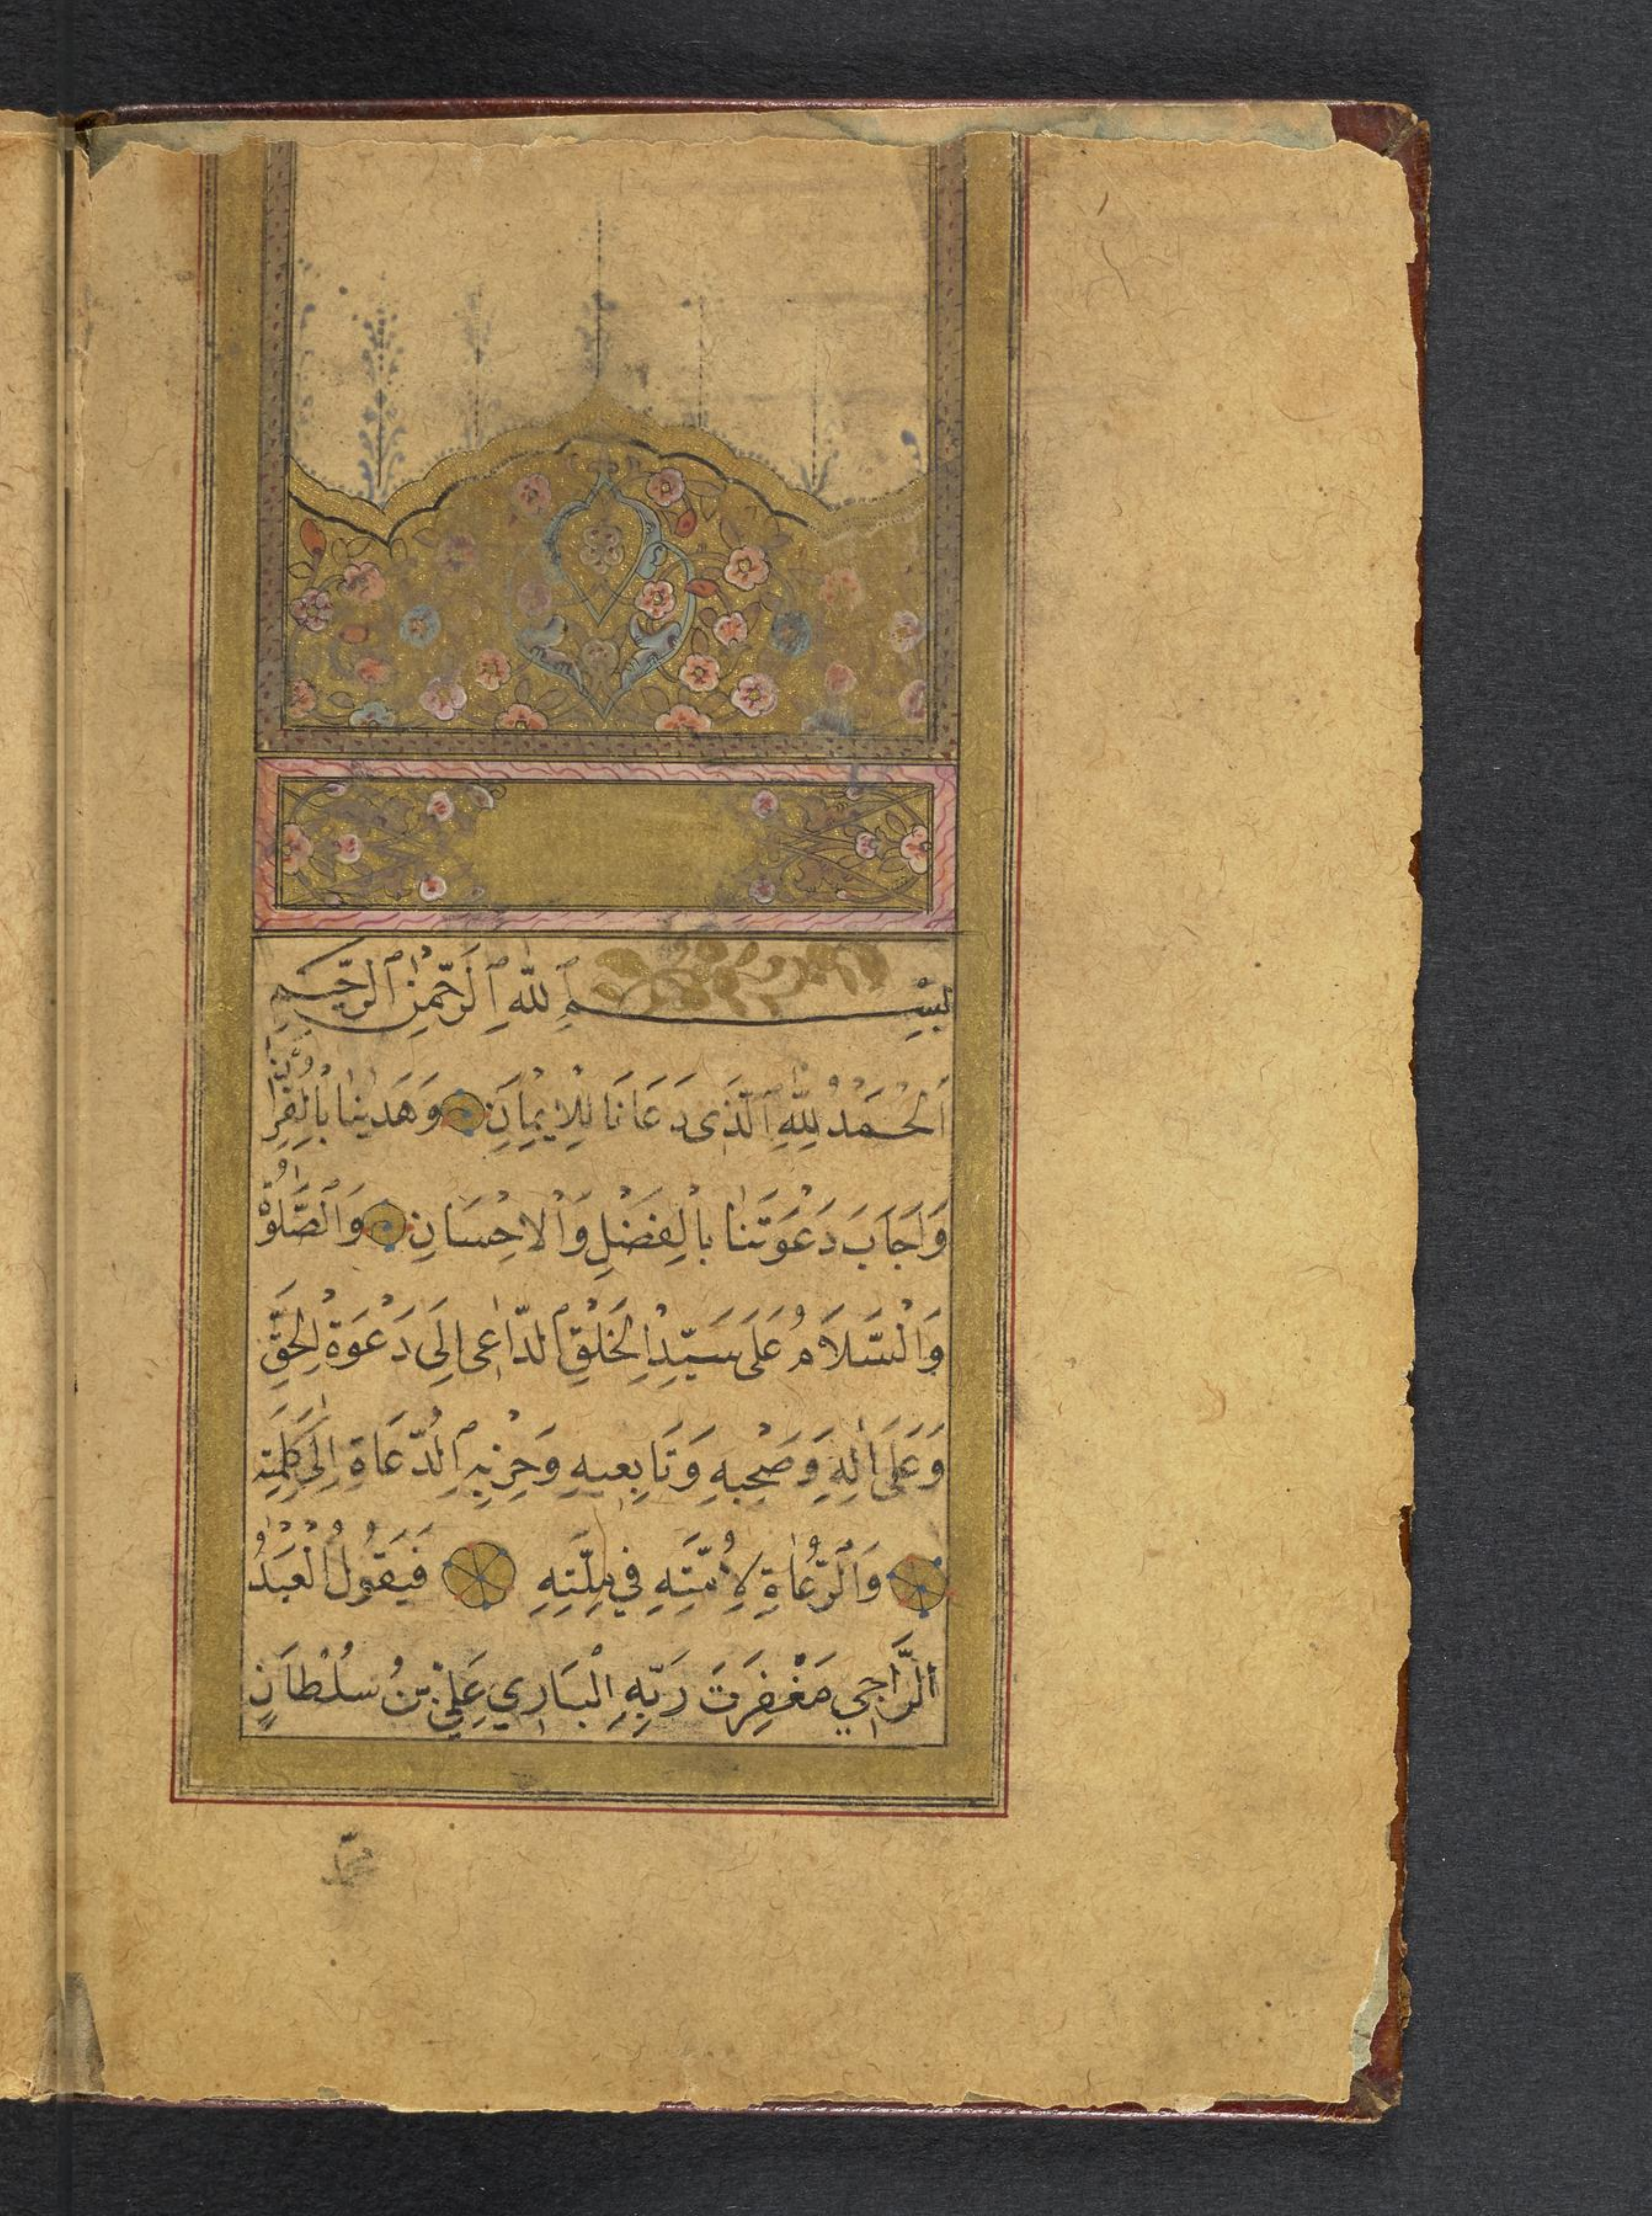 بِسْمِ ٱللّٰهِ ٱلرَّحْمٰنِ ٱلرَّحِيمِ
اَلْحَمْدُ لِلّٰهِ ٱلَّذِى دَعَانَا لِلْاِيمَانِ وَهَدٰينَا بِالْقُرْاٰنِ
وَاَجَابَ دَعْوَتَنَا بِالْفَضْلِ وَالْاِحْسَانِ وَالصَّلٰوةُ
وَالسَّلَامُ عَلَى سَيِّدِ الْخَلْقِ الدَّاعِى اِلَى دَعْوَةِ الْحَقِّ
وَعَلَى اٰلِهِ وَصَحْبِهِ وَتَابِعِيهِ وَحِزْبِهِ الدُّعَاةِ اِلَى كَلِمَتِهِ
وَالرُّعَاةِ لِاُمَّتِهِ فِي مِلَّتِهِ فَيَقُولُ الْعَبْدُ
الرَّاجِي مَغْفِرَتَ رَبِّهِ الْبَارِي عَلِيُّ بْنُ سُلْطَانٍ
محمد